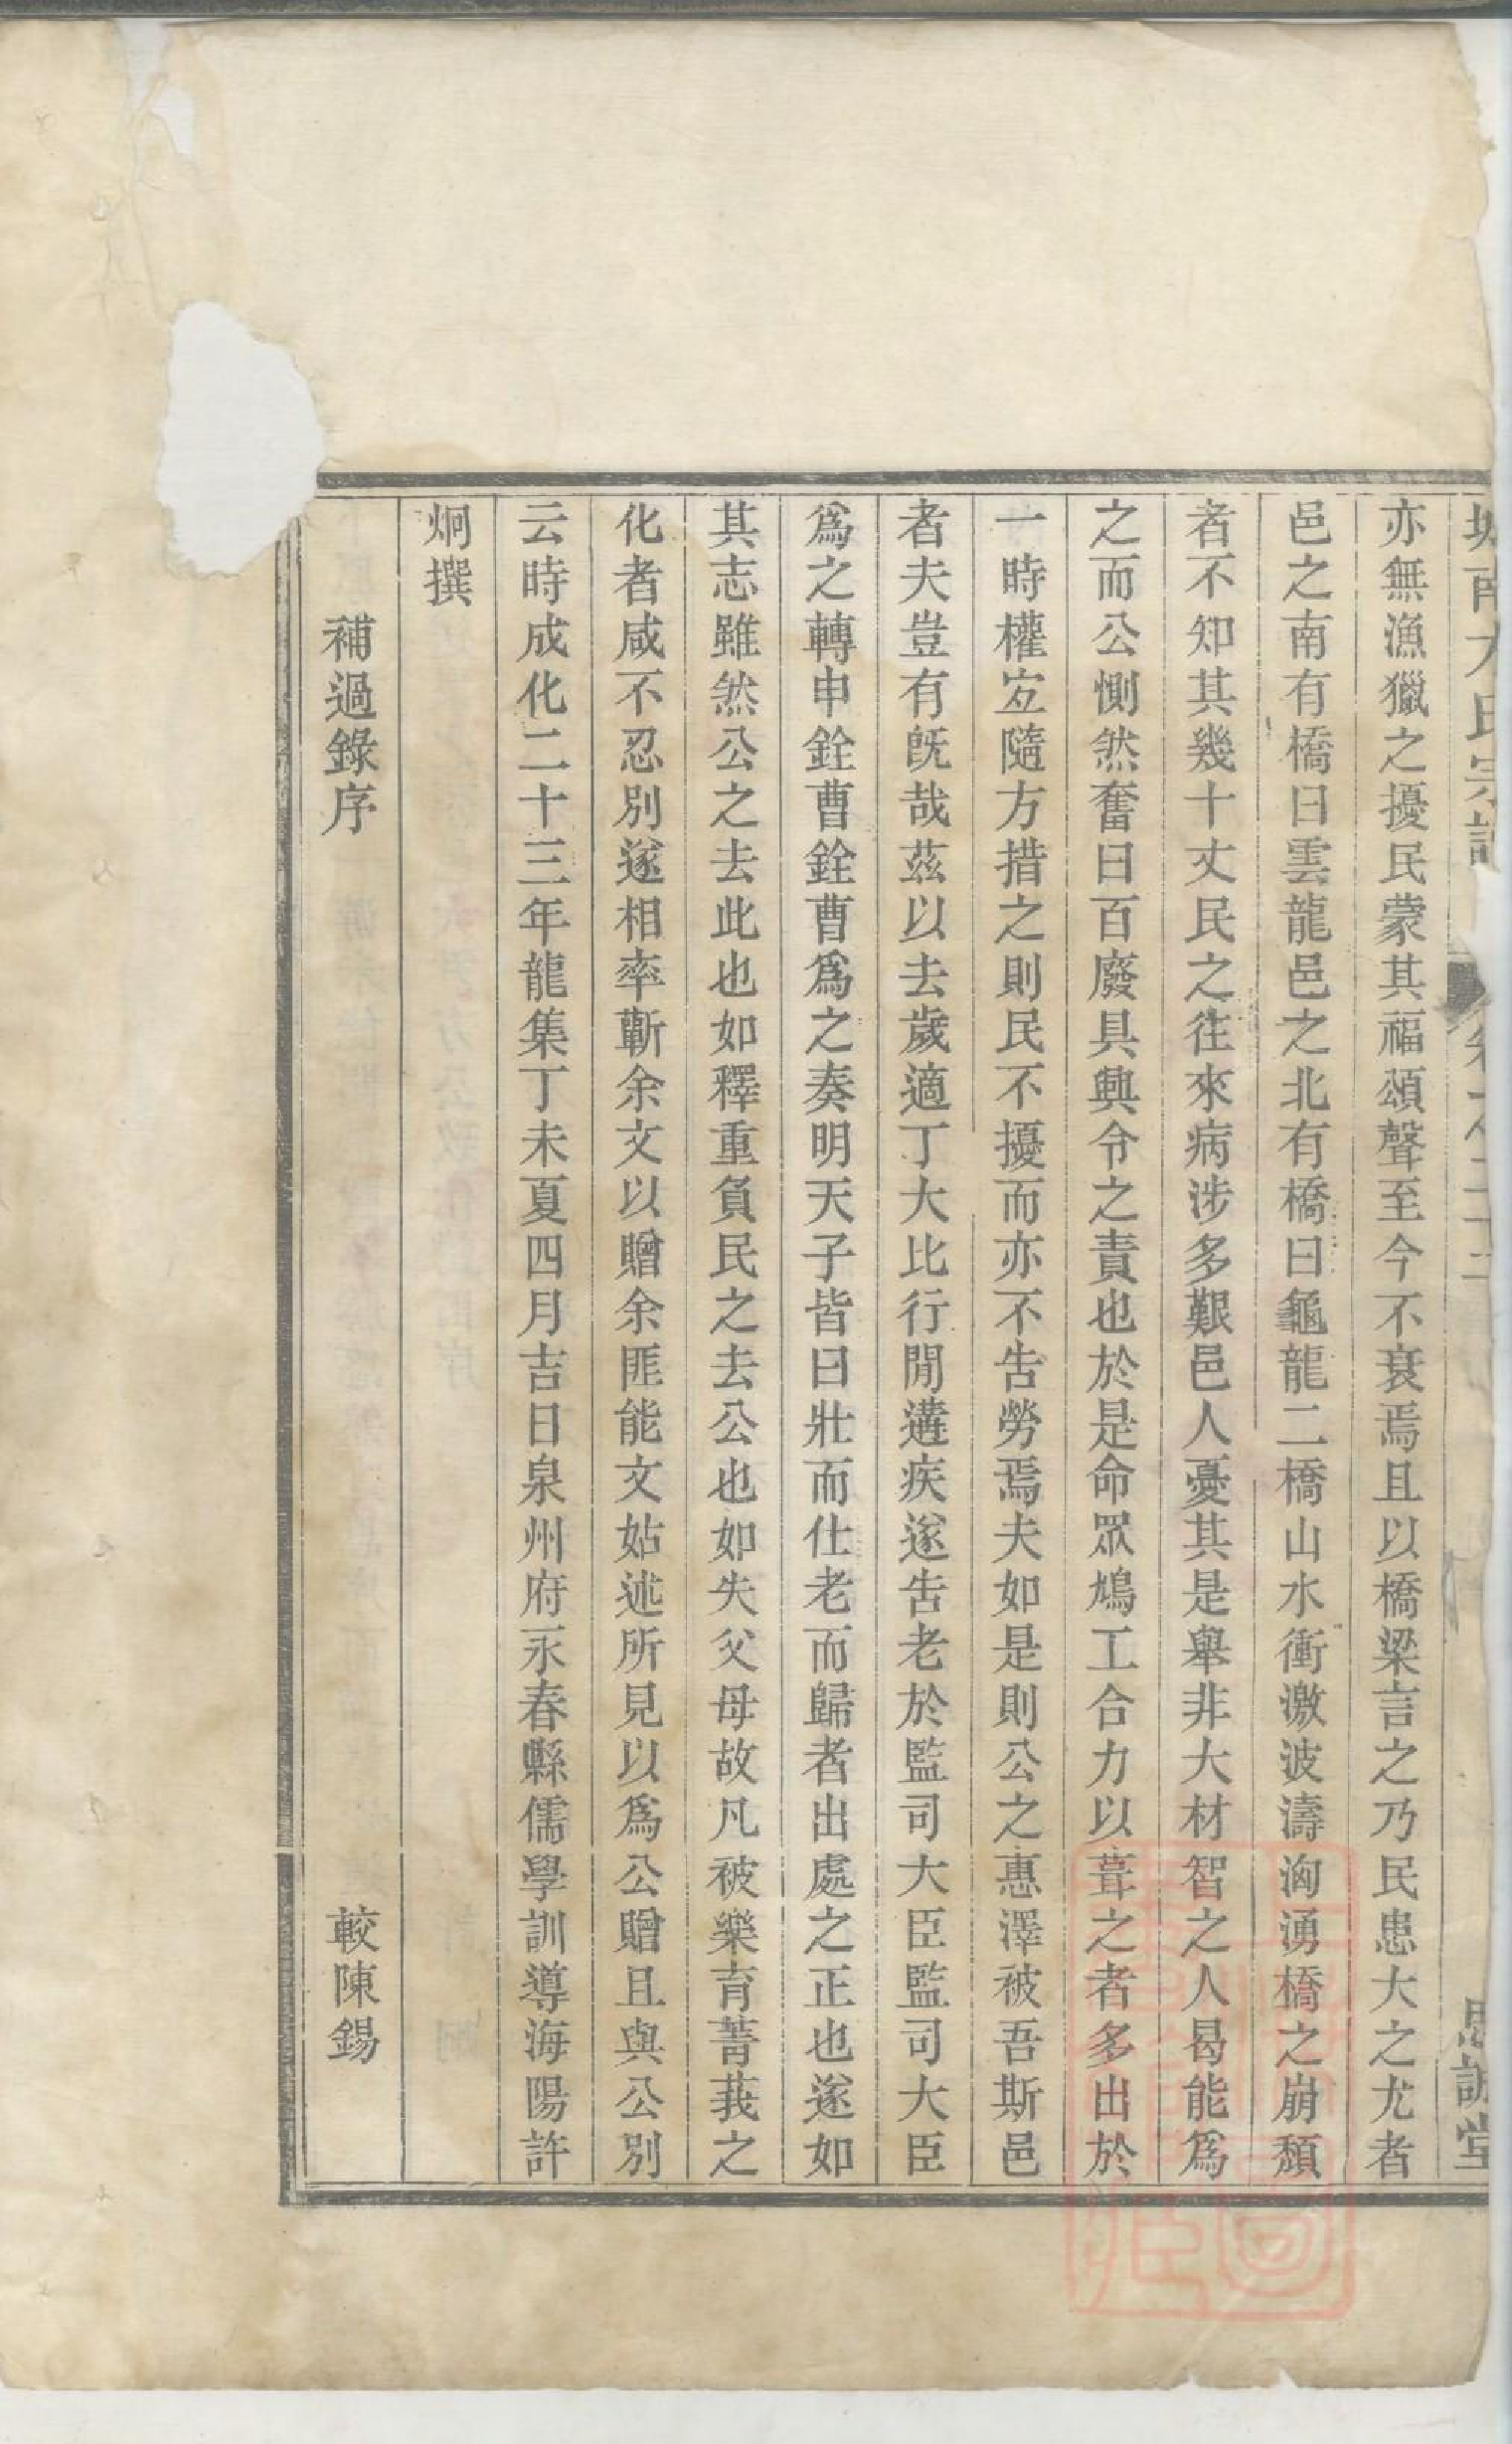 城南方氏宗譜
思誠堂
亦無漁獵之擾民蒙其福頌聲至今不衰焉且以橋梁言之乃民患大之尤者
邑之南有橋曰雲龍邑之北有橋曰龜龍二橋山水衝激波濤洶湧橋之崩頹
者不知其幾十丈民之往來病涉多艱邑人憂其是舉非大材智之人曷能爲
之而公惻然奮曰百廢具興令之責也於是命眾鳩工合力以葺之者多出於
一時權宐隨方措之則民不擾而亦不告勞焉夫如是則公之惠澤被吾斯邑
者夫豈有旣哉茲以去歲適丁大比行閒遘疾遂告老於監司大臣監司大臣
爲之轉申銓曹銓曹爲之奏明天子皆曰壯而仕老而歸者出處之正也遂如
其志雖然公之去此也如釋重負民之去公也如失父母故凡被樂育菁莪之
化者咸不忍別遂相率蘄余文以贈余匪能文姑述所見以爲公贈且與公別
云時成化二十三年龍集丁未夏四月吉日泉州府永春縣儒學訓導海陽許
炯撰
補過錄序
較陳錫